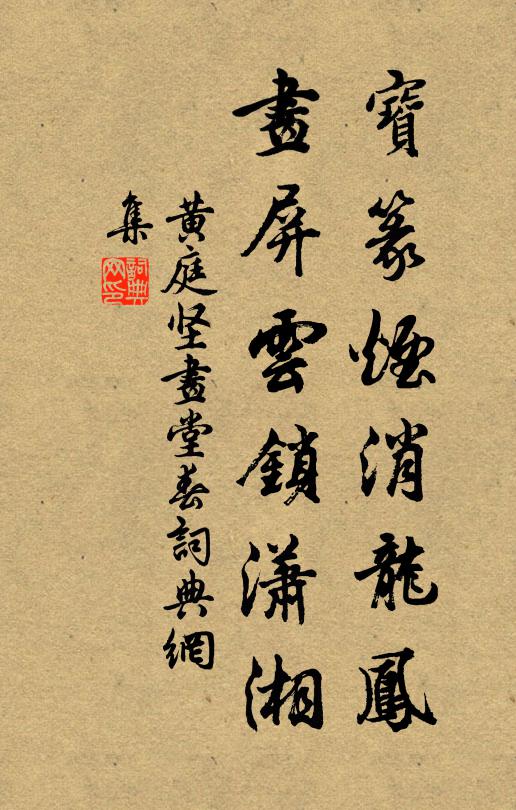 寶篆煙消龍鳳
畫屏雲鎖瀟湘
黄庭坚畫堂春詞典網
集
詞典网印